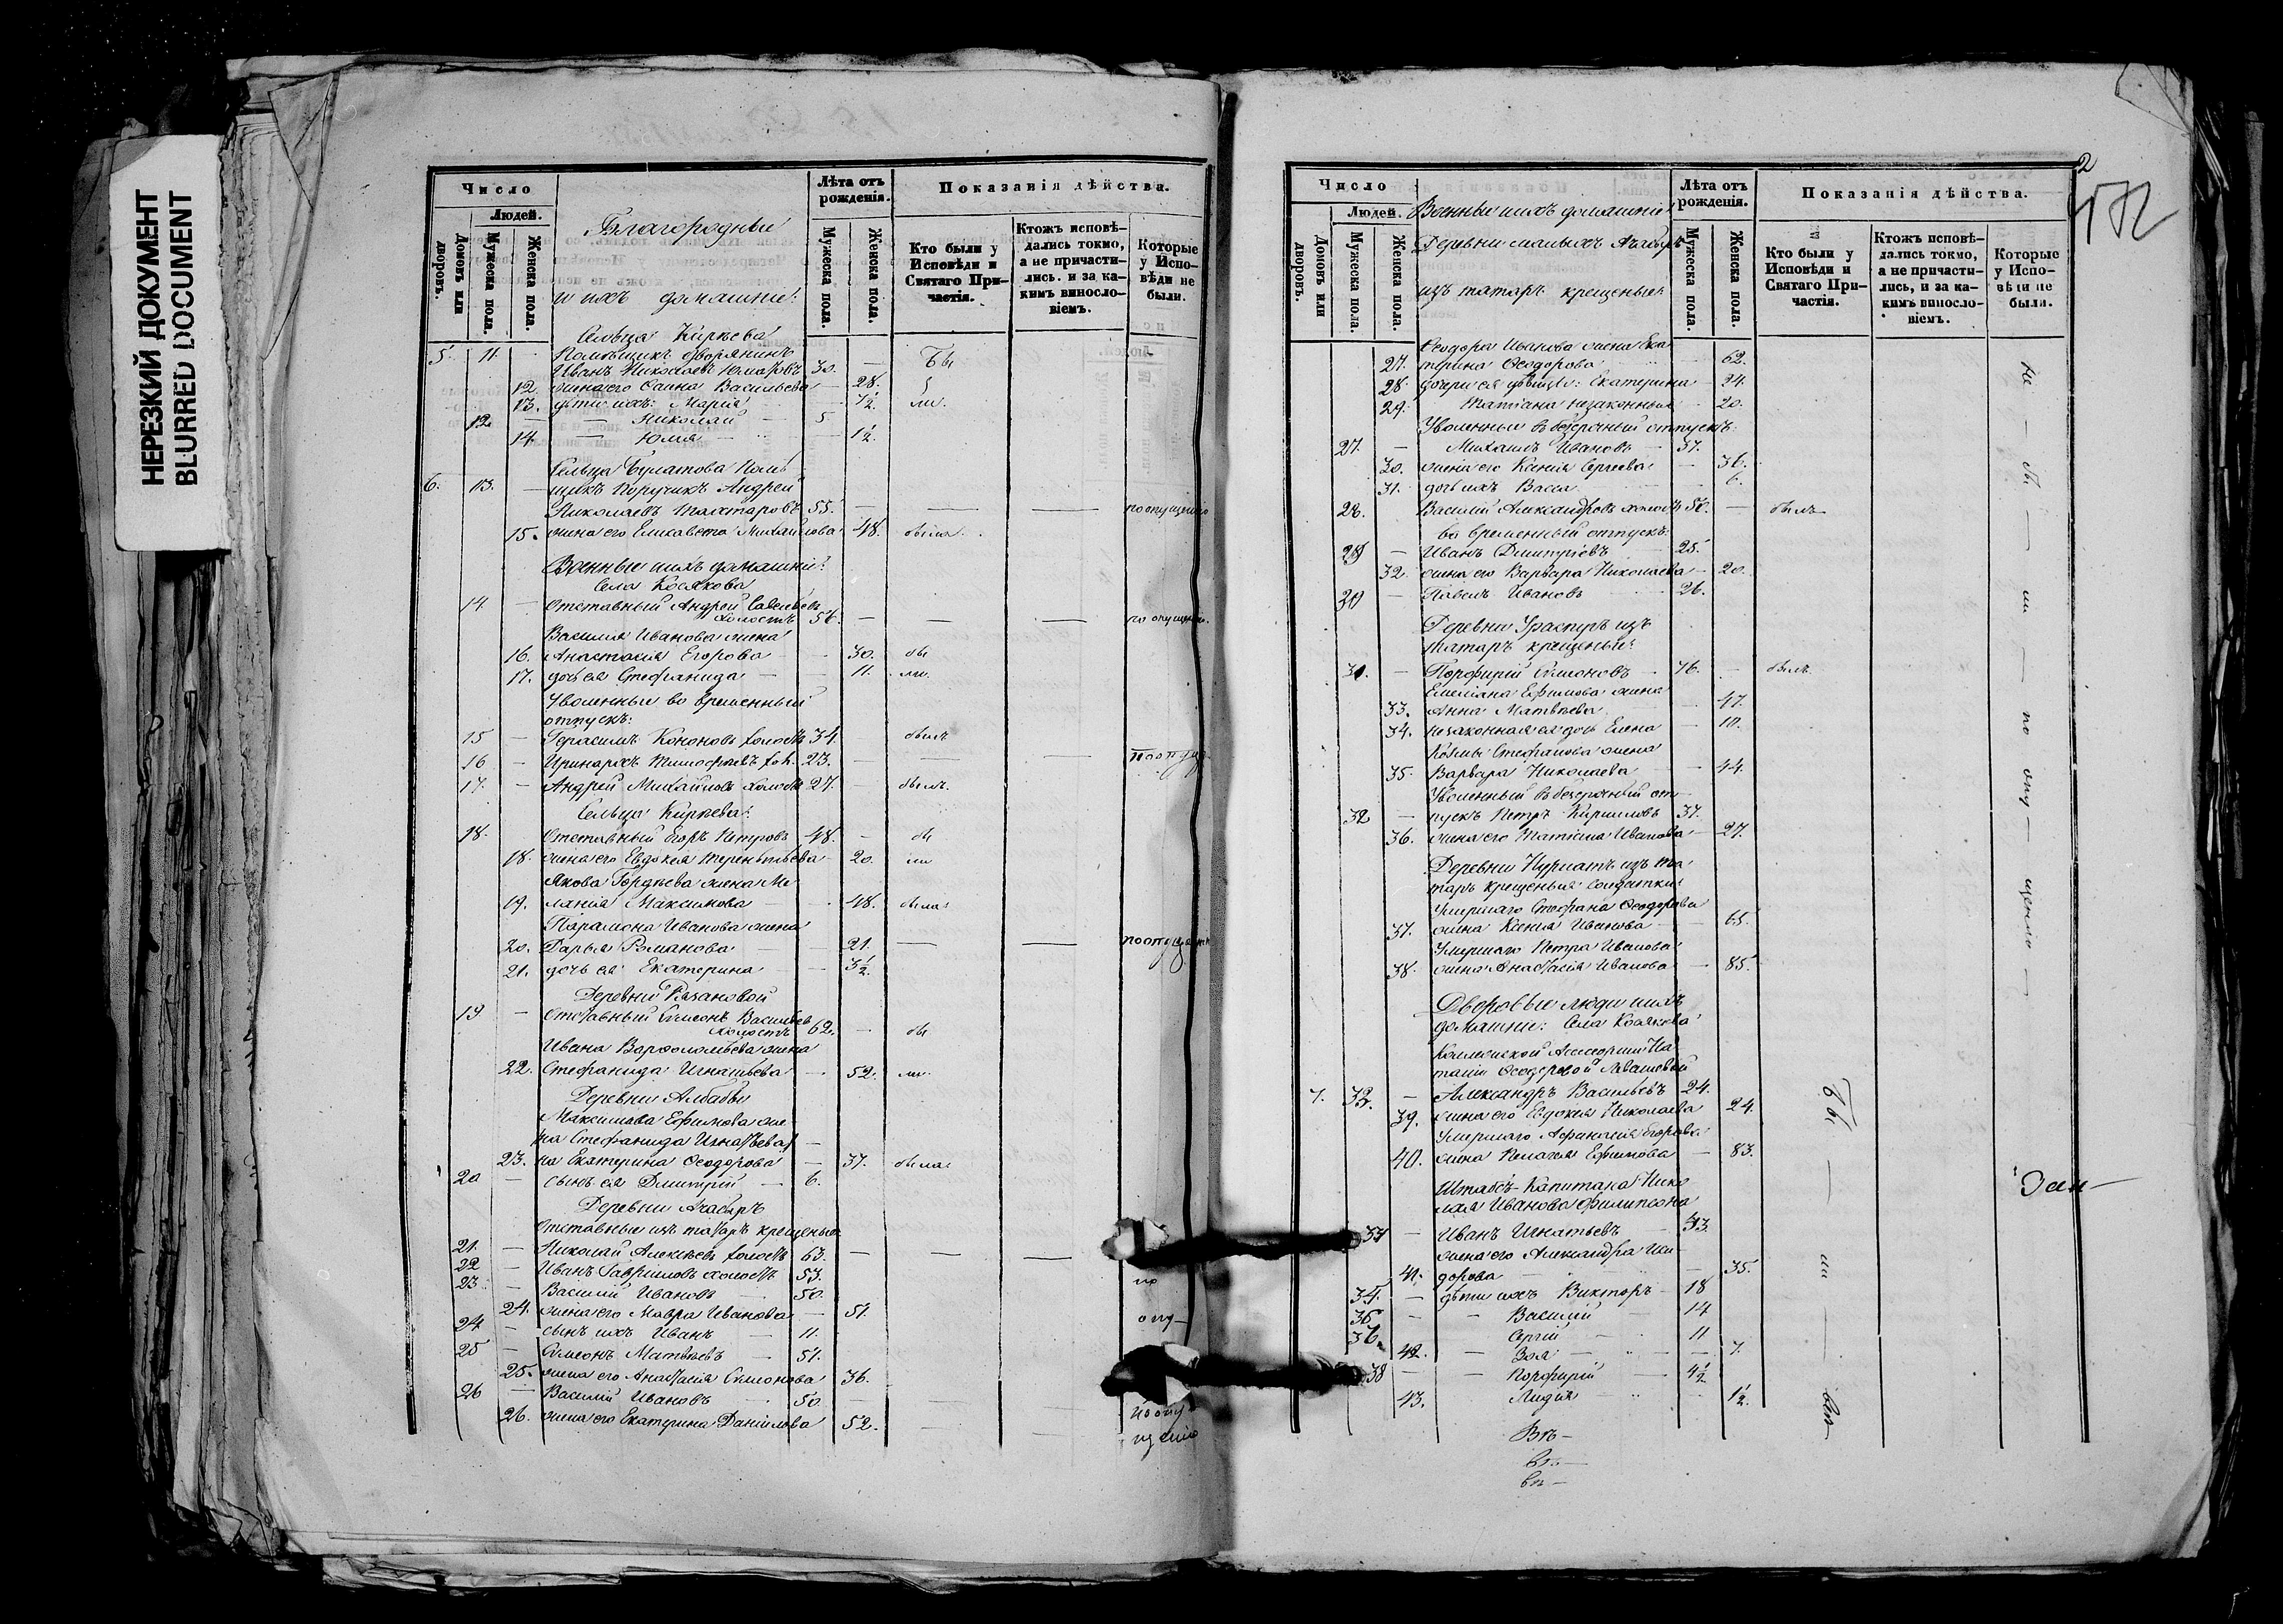 НЕРЕЗКИЙ ДОКУМЕНТ
BLURRED DOCUMENT
Число
Людей.
Домовъ или дворовъ.
Мужеска пола.
Женска пола.
Благородные
и ихъ домашніе:
Лѣта отъ рожденія.
Мужеска пола.
Женска пола.
Показанія дѣйства.
Кто были у Исповѣди и Святаго Причастія.
Ктожъ исповѣдались токмо, а не причастились. и за какимъ винословіемъ.
Которые у Исповѣди не были.
Сельца Киркева
5. 11. Помѣщикъ дворянинъ
Иванъ Николаевъ 30. — Бы
12. жена его Васильева — 28.
13. дѣти ихъ: Марія 7½. ли.
12 — Николай 5
14 — Юлія — 1½.
Сельца Булатова Помѣ
6. 13. — щикъ Поручикъ Андрей
Николаевъ 55. — — — по опущенію
15. жена его Елисавета Михайлова 48. была.
Военные и ихъ домашніе:
Села Косякова
14 — Отставный Андрей Савельевъ
холостъ 56. — — — по опущен.
Василія Иванова жена
16. Анастасія Егорова 30. бы
17. дочь ея Стефанида — 11. ли.
Уволенные во временный
отпускъ:
15 — Герасимъ Кононовъ холостъ 34. былъ
16 — Иринархъ Тимофеевъ хол. 23. — — — по опущ.
17. — Андрей Михайловъ холостъ 27. — былъ.
Сельца Киркева:
18. Отставный Егоръ Петровъ 48. — бы
18. жена его Евдокія Терентьева 20. ли
Якова Гордѣева жена Ме
19. ланія Максимова 48. была
Парамона Иванова жена
20. Дарья Романова 21. — — по опущен
21. дочь ея Екатерина — 3½.
Деревни Казановой
19 — Отставный Симеонъ Васильевъ
холостъ 62. — бы
Ивана Варфоломѣева жена
22. Стефанида Игнатьева — 52. ли.
Деревни Албабы
Максимова Ефимова же
на Стефанида Игнатьева —
23. на Екатерина Ѳеодорова — 37. была
20 — сынъ ея Димитрій — 6.
Деревни Ачасыръ
Отставные изъ татаръ крещеные
21. — Николай Алексѣевъ холостъ 63. — — —
22 — Иванъ Гавріиловъ холостъ 53. по
23 — Василій Ивановъ 50.
24. жена его Мавра Иванова — 51. опу—
24 — сынъ ихъ Иванъ — 11.
25 — Симеонъ Матвѣевъ — 51.
25. жена его Анастасія Симонова 36.
26 — Василій Ивановъ 50.
26. жена его Екатерина Даніилова 52. по опу
щенію
2
Число
Людей.
Домовъ или дворовъ.
Мужеска пола.
Женска пола.
Военные и ихъ домашніе
Деревни малыхъ
изъ татаръ крещеные:
Лѣта отъ рожденія.
Мужеска пола.
Женска пола.
Показанія дѣйства.
Кто были у Исповѣди и Святаго Причастія.
Ктожъ исповѣдались токмо, а не причастились, и за какимъ винословіемъ.
Которые у Исповѣди не были.
Ѳеодора Иванова жена Ека
27. терина Ѳеодорова — 62.
28. дочери ея дѣвицы: Екатерина — 24.
29. Татіана незаконныя — 20.
Уволенные въ безсрочный отпускъ:
27. — Михаилъ Ивановъ — 37.
30. жена его Ксенія Сергеева — 36.
31. дочь ихъ Васса 6.
28. Василій Александровъ холостъ 50. — былъ
во временный отпускъ:
29 — Иванъ Димитріевъ 25.
32. жена его Варвара Николаева — 20.
30 — Павелъ Ивановъ 26.
не — бы — ли — по опу — щенію —
Деревни Ураспугъ изъ
татаръ крещеные:
31. — Порфирій Симеоновъ — 76. — былъ
Емеліана Ефимова жена
33. Анна Матвѣева — 47.
34. незаконная ея дочь Елена — 10.
Козмы Стефанова жена
35. Варвара Николаева — 44.
Уволенный въ безсрочный от
32 — пускъ Петръ Кирилловъ 37.
36. жена его Татіана Иванова — 27.
Деревни Нурлатъ изъ та
таръ крещеныя солдатки:
Умершаго Стефана Ѳеодорова
37. жена Ксенія Иванова — 65.
Умершаго Петра Иванова
38. жена Анастасія Иванова — 85.
Дворовые люди и ихъ
домашніе: Села Косякова
Коллежской Ассесорши На
таліи Ѳеодоровой
7. 33. — Александръ Васильевъ 24.
39. жена его Евдокія Николаева 24.
Умершаго Афанасія Егорова
40. жена Пелагея Ефимова — 83.
Штабсъ-Капитана Нико
лая Иванова Филипсона
34 — Иванъ Игнатьевъ 43.
жена его Александра Иси
41. дорова — 35.
35. — дѣти ихъ Викторъ — 18
36 — — Василій 14
37. Сергій — 11
42. — Зоя — — 7.
38 — — Порфирій — 4½
43. Лидія — 1½.
Бы — ли — всѣ
Въ—
въ—
въ—